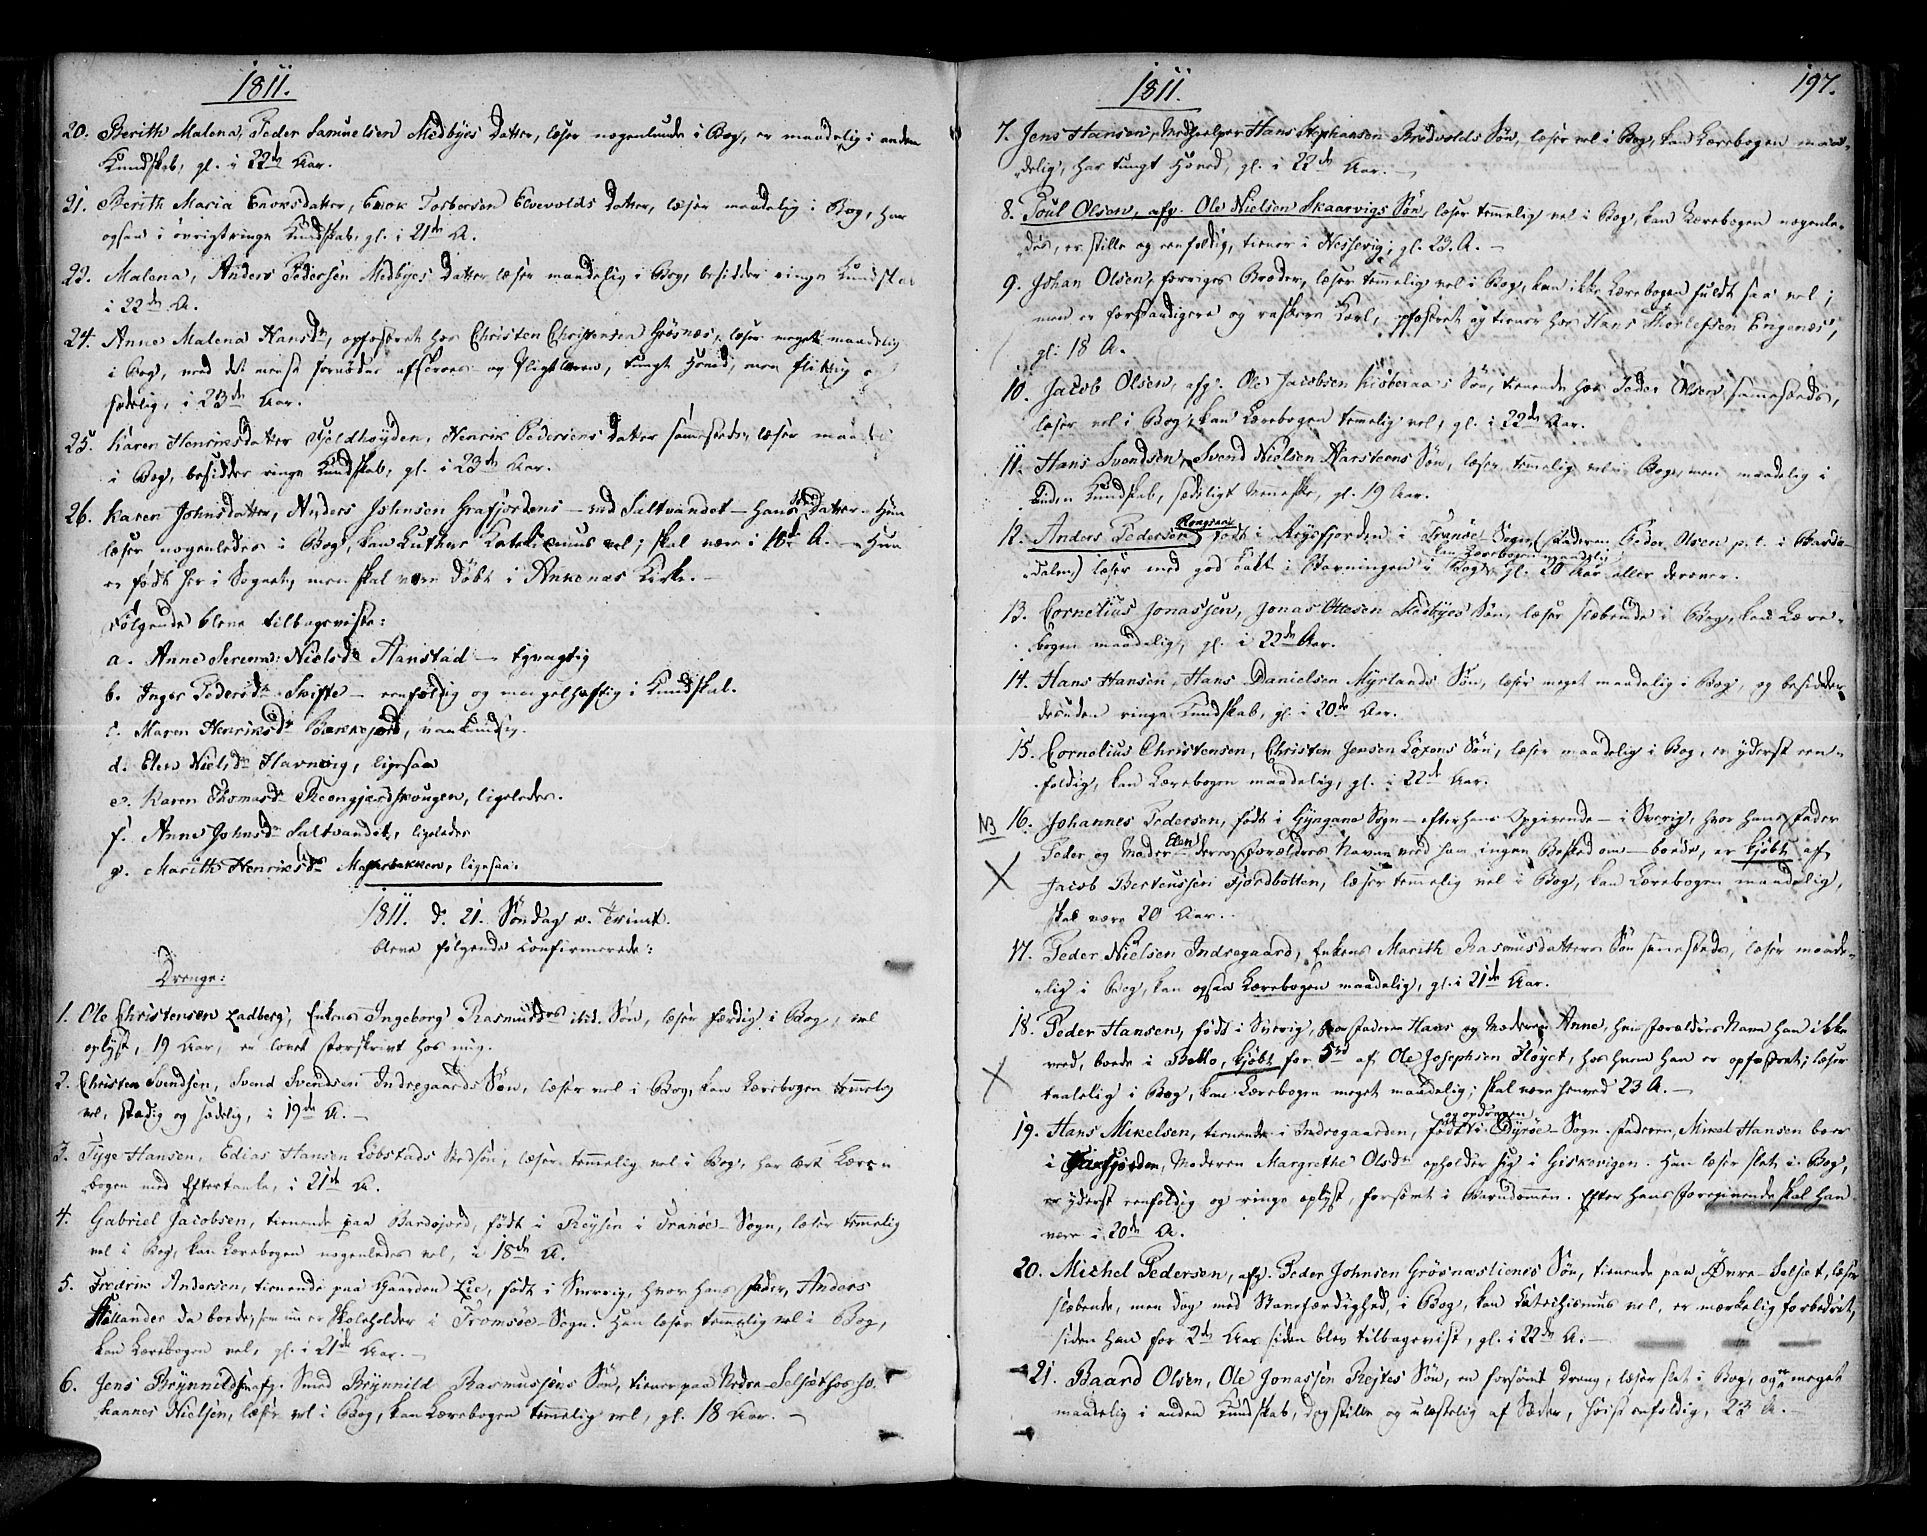 1811.
20. Berith Malena, Peder Samuelsen Medbyes Datter, læser nogenlunde i Bog, er maadelig i anden
Kundskab, gl. i 22de Aar.
21. Berith Maria Enoksdatter, Enok Torbersen Elvevolds Datter, læser maadelig i Bog, har
ogsaa i øvrigt ringe Kundskab, gl. i 21de A.
22. Malena, Anders Pedersen Medbyes Datter læser maadelig i Bog, besidder ringe Kundskab
i 22de A.
24. Anne Malena Hansdr, opfostret hos Christen Christensen Grøsnæs, læser meget maadelig
i Bog, med det meest fornødne af Troes- og Pligtlæren, tungt Hoved, men flittig og
sædelig, i 23de Aar.
25. Karen Henriksdatter Fjeldhøyden, Henrik Pedersens Datter sammesteds, læser maadelig
i Bog, besidder ringe Kundskab, gl. i 23de Aar.
26. Karen Johnsdatter, Anders Johnsen Grafjordens - ved Saltvandet - Datter - Hun
læser nogenledes i Bog, kan Luthers Katekismus vel; skal være i 18de A. - Hun
er født her i Sognet, men skal være døbt i Ankenæs Kirke. -
Følgende bleve tilbageviiste:
a. Anne Serena Nielsdr Aanstad -
b. Inger Pedersdr Skifte - eenfoldig og mangelhaftig i Kundskab.
c. Maren Henriksdr Bakkejord, vankundig.
d. Elen Nielsdr Havnvig, ligesaa
e. Karen Thomasdr Kongsjordskougen, ligeledes.
f. Anne Johnsdr Saltvandet, ligeledes
g. Marith Henriksdr Møkerbakken, ligesaa.
1811. d. 21. Søndag e. Trinit.
bleve følgende Confirmerede:
Drenge:
1. Ole Christensen Ladberg, Enken Ingeborg Rasmusdrs ibid. Søn, læser færdig i Bog, vel
oplyst, 19 Aar, er lovet Storskrivt hos mig.
2. Christen Svendsen, Svend Svendsen Indregaards Søn, læser vel i Bog, kan Lærebogen temmelig
vel, stadig og sædelig, i 19de A. -
3. Tyge Hansen, Edias Hansen Løbstads Stedsøn, læser temmelig vel i Bog, har lært Lære-
bogen med Eftertanke, i 21de A.
4. Gabriel Jacobsen, tienende paa Bardojord, født i Reysen i Tranøe-Sogn, læser temmelig
vel i Bog, kan Lærebogen nogenledes vel, i 18de A.
5. Fredrik Andersen, tienende paa Gaarden Lie, født i Sverrig, hvor hans Fader, Anders
Hollander da boede, som nu er Skoleholder i Tromsøe-Sogn. Han læser temmelig vel i Bog,
kan Lærebogen vel, gl. i 21de Aar. -
6. Jens Brynnildsen afg. Smed Brynnild Rasmussens Søn, tiener paa Nedre-Selset hos Jo-
hannes Nielsen, læser vel i Bog, kan Lærebogen temmelig vel, gl. 18 Aar. -
1811.
197.
7. Jens Hansen, Medhielper Hans Stephansen Bredvolds Søn, læser vel i Bog, kan Lærebogen maa-
delig, har tungt Hoved, gl. i 22de Aar. -
8. Poul Olsen, afg. Ole Nielsen Skaarvigs Søn, læser temmelig vel i Bog, kan Lærebogen nogenle-
des, er stille og eenfoldig, tiener i Nessevig, gl. 23. A. -
9. Johan Olsen, forriges Broder, læser temmelig vel i Bog, kan ikke Lærebogen fuldt saa vel;
men er forstandigere og raskere Karl, opfostret og tiener hos Hans Thorlefsen Engenæs,
gl. 18 A.
10. Jacob Olsen, afg. Ole Jacobsen Kiøberaa's Søn, tienende hos Peder Olsen sammesteds,
læser vel i Bog, kan Lærebogen temmelig vel, gl. i 22de Aar.
11. Hans Svendsen, Svend Nielsen Aarsteens Søn, læser temmelig vel i Bog, men maadelig i
anden Kundskab, sædeligt Menneske, gl. 19 Aar.
12. Anders Pedersen Kongsvig, født i Røysfjorden i Tranøe Sogn, (Faderen Peder Olsen p. t. i Bardo-
Dalen) læser med god Takt i Stavningen i Bog, kan Lærebogen maadelig, gl. 20 Aar eller derover.
13. Cornelius Jonassen, Jonas Ottesen Medbyes Søn, læser slæbende i Bog, kan Lære-
bogen maadelig, gl. i 22de Aar.
14. Hans Hansen, Hans Danielsen Myrlands Søn, læser meget maadelig i Bog, og besidder
desuden ringe Kundskab, gl. i 20de Aar.
15. Cornelius Christensen, Christen Jensen Løxens Søn, læser maadelig i Bog, er yderst een-
foldig, kan Lærebogen maadelig, gl. i 22de Aar.
NB 16. Johannes Pedersen, født i Gyngane Sogn - efter hans Opgivende - i Sverig, hvor hans Fader
Peder og Moder Elen - deres Forældres Navne veed han ingen Beskeed om - boede, er kjøbt af
Jacob Berteussen Fjordbotten, læser temmelig vel i Bog, kan Lærebogen maadelig,
skal være 20 Aar.
17. Peder Nielsen Indregaard, Enken Marith Rasmusdatters Søn sammesteds, læser maade-
lig i Bog, kan ogsaa Lærebogen maadelig, gl. i 21de Aar.
18. Peder Hansen, født i Sverig, hvor Faderen Hans og Moderen Anne, hvis Forældres Navn han ikke
veed, boede i Betto, kjøbt for 5 rd af Ole Josephsen Fløyet, hos hvem han er opfostret; læser
taalelig i Bog, kan Lærebogen meget maadelig; skal være henved 23 A. -
19. Hans Mikelsen, tienende i Indregaarden, født og opdragen i Dyrøe-Sogn. Faderen, Mikel Hansen boer
i Faxfjorden, Moderen Margrethe Olsdr opholder sig i Giskevigen. Han læser slet i Bog,
er yderst eenfoldig og ringe oplyst, forsømt i Barndommen. Efter hans Foregivende skal han
være i 20de A.
20. Michel Pedersen, afg. Peder Johnsen Grøsnæslienes Søn, tienende paa Øvre-Selset, læser
slæbende, men dog med Stavefærdighed, i Bog, kan Katechismus vel, er mærkelig forbedret,
siden han for 2de Aar siden blev tilbageviist, gl. i 22de A. -
21. Baard Olsen, Ole Jonassen Rejtes Søn, en forsømt Dreng, læser slet i Bog, og er meget
maadelig i anden Kundskab, dog stille og ulastelig af Sæder, høist eenfoldig, 23 A. -